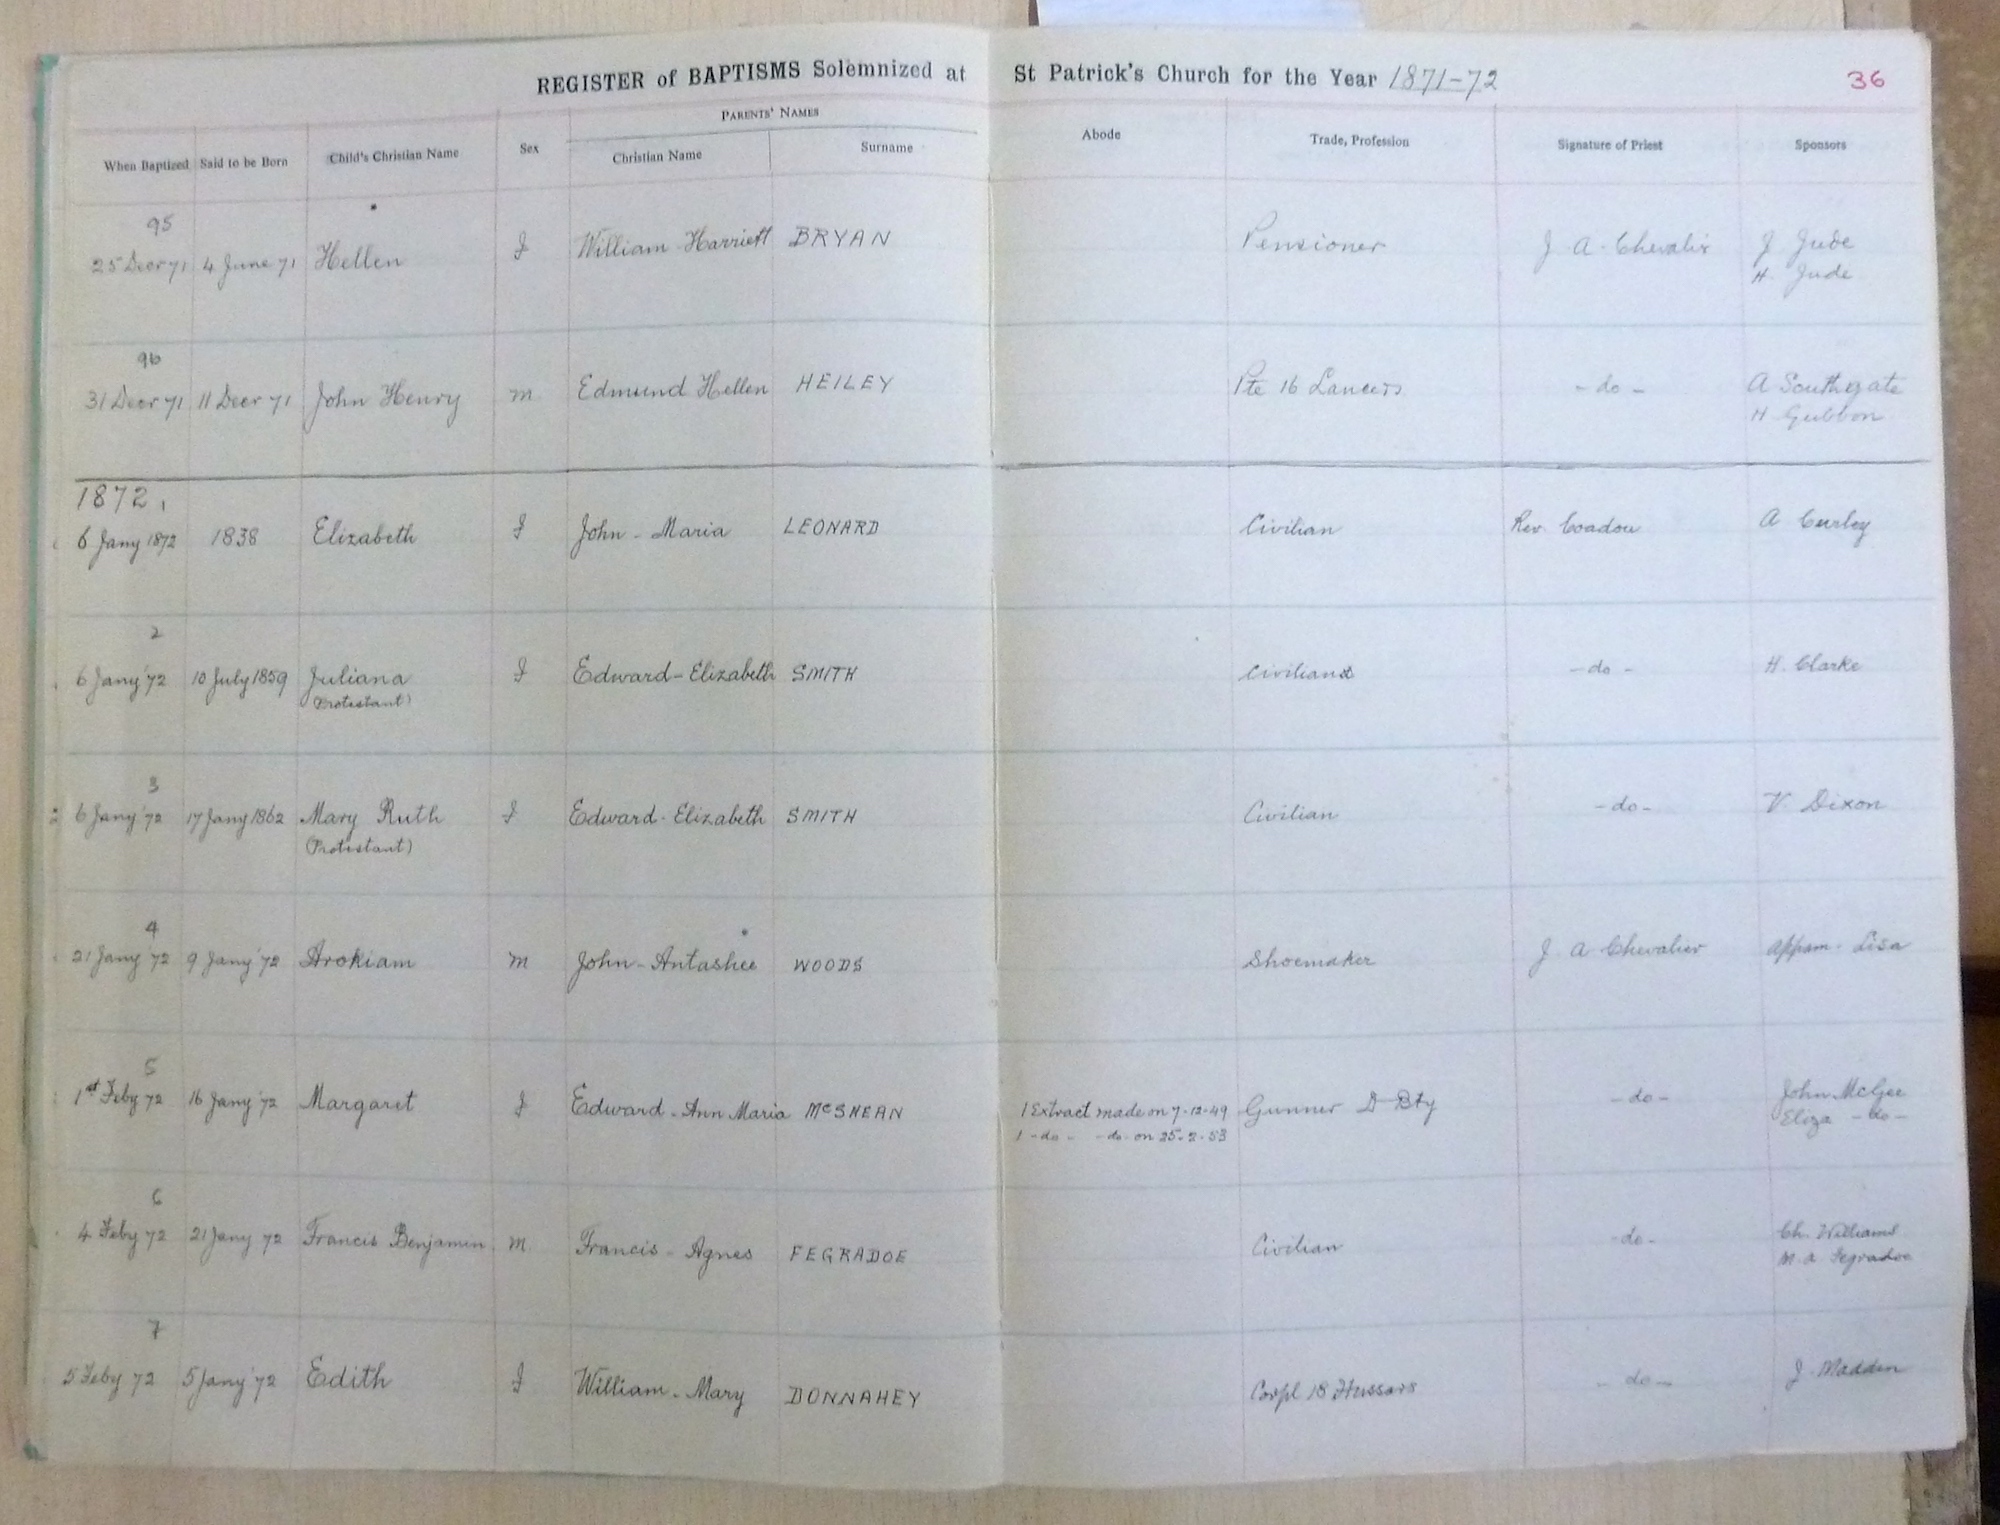 REGISTER of BAPTISMS Solemnized at St Patrick's Church for the Year 1871-72 36
PARENTS' NAMES
When Baptized Said to be Born Child's Christian Name Sex Christian Name Surname Abode Trade, Profession Signature of Priest Sponsors
95
25 Decr 71 4 June 71 Hellen f William Harriett BRYAN Pensioner J A Chevalier J Jude
H. Jude
96
31 Decr 71 11 Decr 71 John Henry m Edmund Hellen HEILEY Pte 16 Lancers - do - A Southgate
H Gubbon
1872 1
6 Jany 1872 1838 Elizabeth f John - Maria LEONARD Civilian Rev. Coadou A Curley
2
6 Jany '72 10 July 1859 Juliana f Edward - Elizabeth SMITH Civilian - do - H. Clarke
(Protestant)
3
6 Jany '72 17 Jany 1862 Mary Ruth f Edward - Elizabeth SMITH Civilian - do - V Dixon
(Protestant)
4
21 Jany '72 9 Jany '72 Arokiam m John - Antashee WOODS Shoemaker J A Chevalier Appam - Lisa
5
1st Feby 72 16 Jany '72 Margaret f Edward - Ann Maria McSHEAN 1 Extract made on 7-12-49 Gunner D Bty - do - John McGee
1 - do - - do - on 25-2-53 Eliza - do -
6
4 Feby 72 21 Jany 72 Francis Benjamin m Francis - Agnes FEGRADOE Civilian - do - Ch. Williams
M. A Fegradoe
7
5 Feby 72 5 Jany '72 Edith f William - Mary DONNAHEY Corpl 18 Hussars - do - J Madden